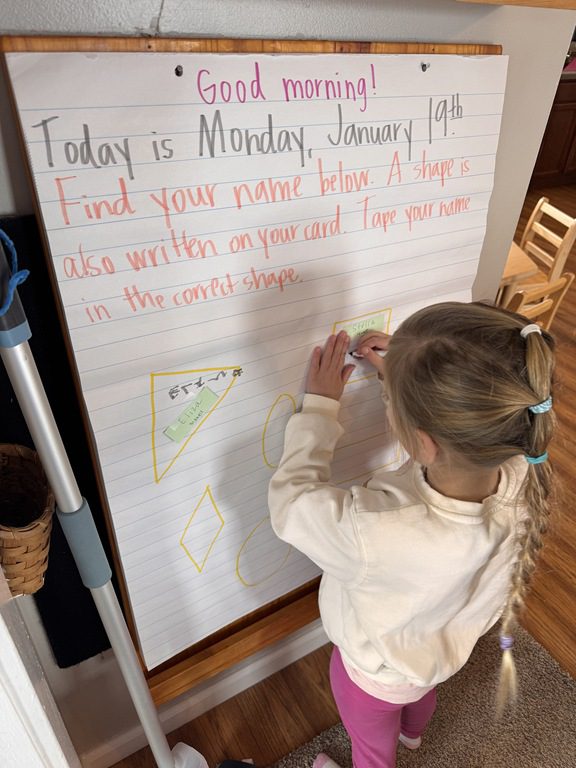 Good morning!
Today is Monday, January 19th.
Find your name below. A shape is
also written on your card. Tape your name
in the correct shape.
Eliza